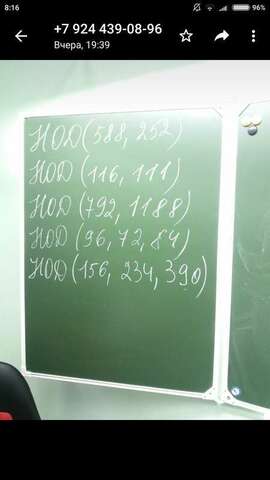 8:16
96%
+7 924 439-08-96
Вчера, 19:39
НОД(588, 252)
НОД (116, 111)
НОД (792, 1188)
НОД (96, 72, 84)
НОД (156, 234, 390)